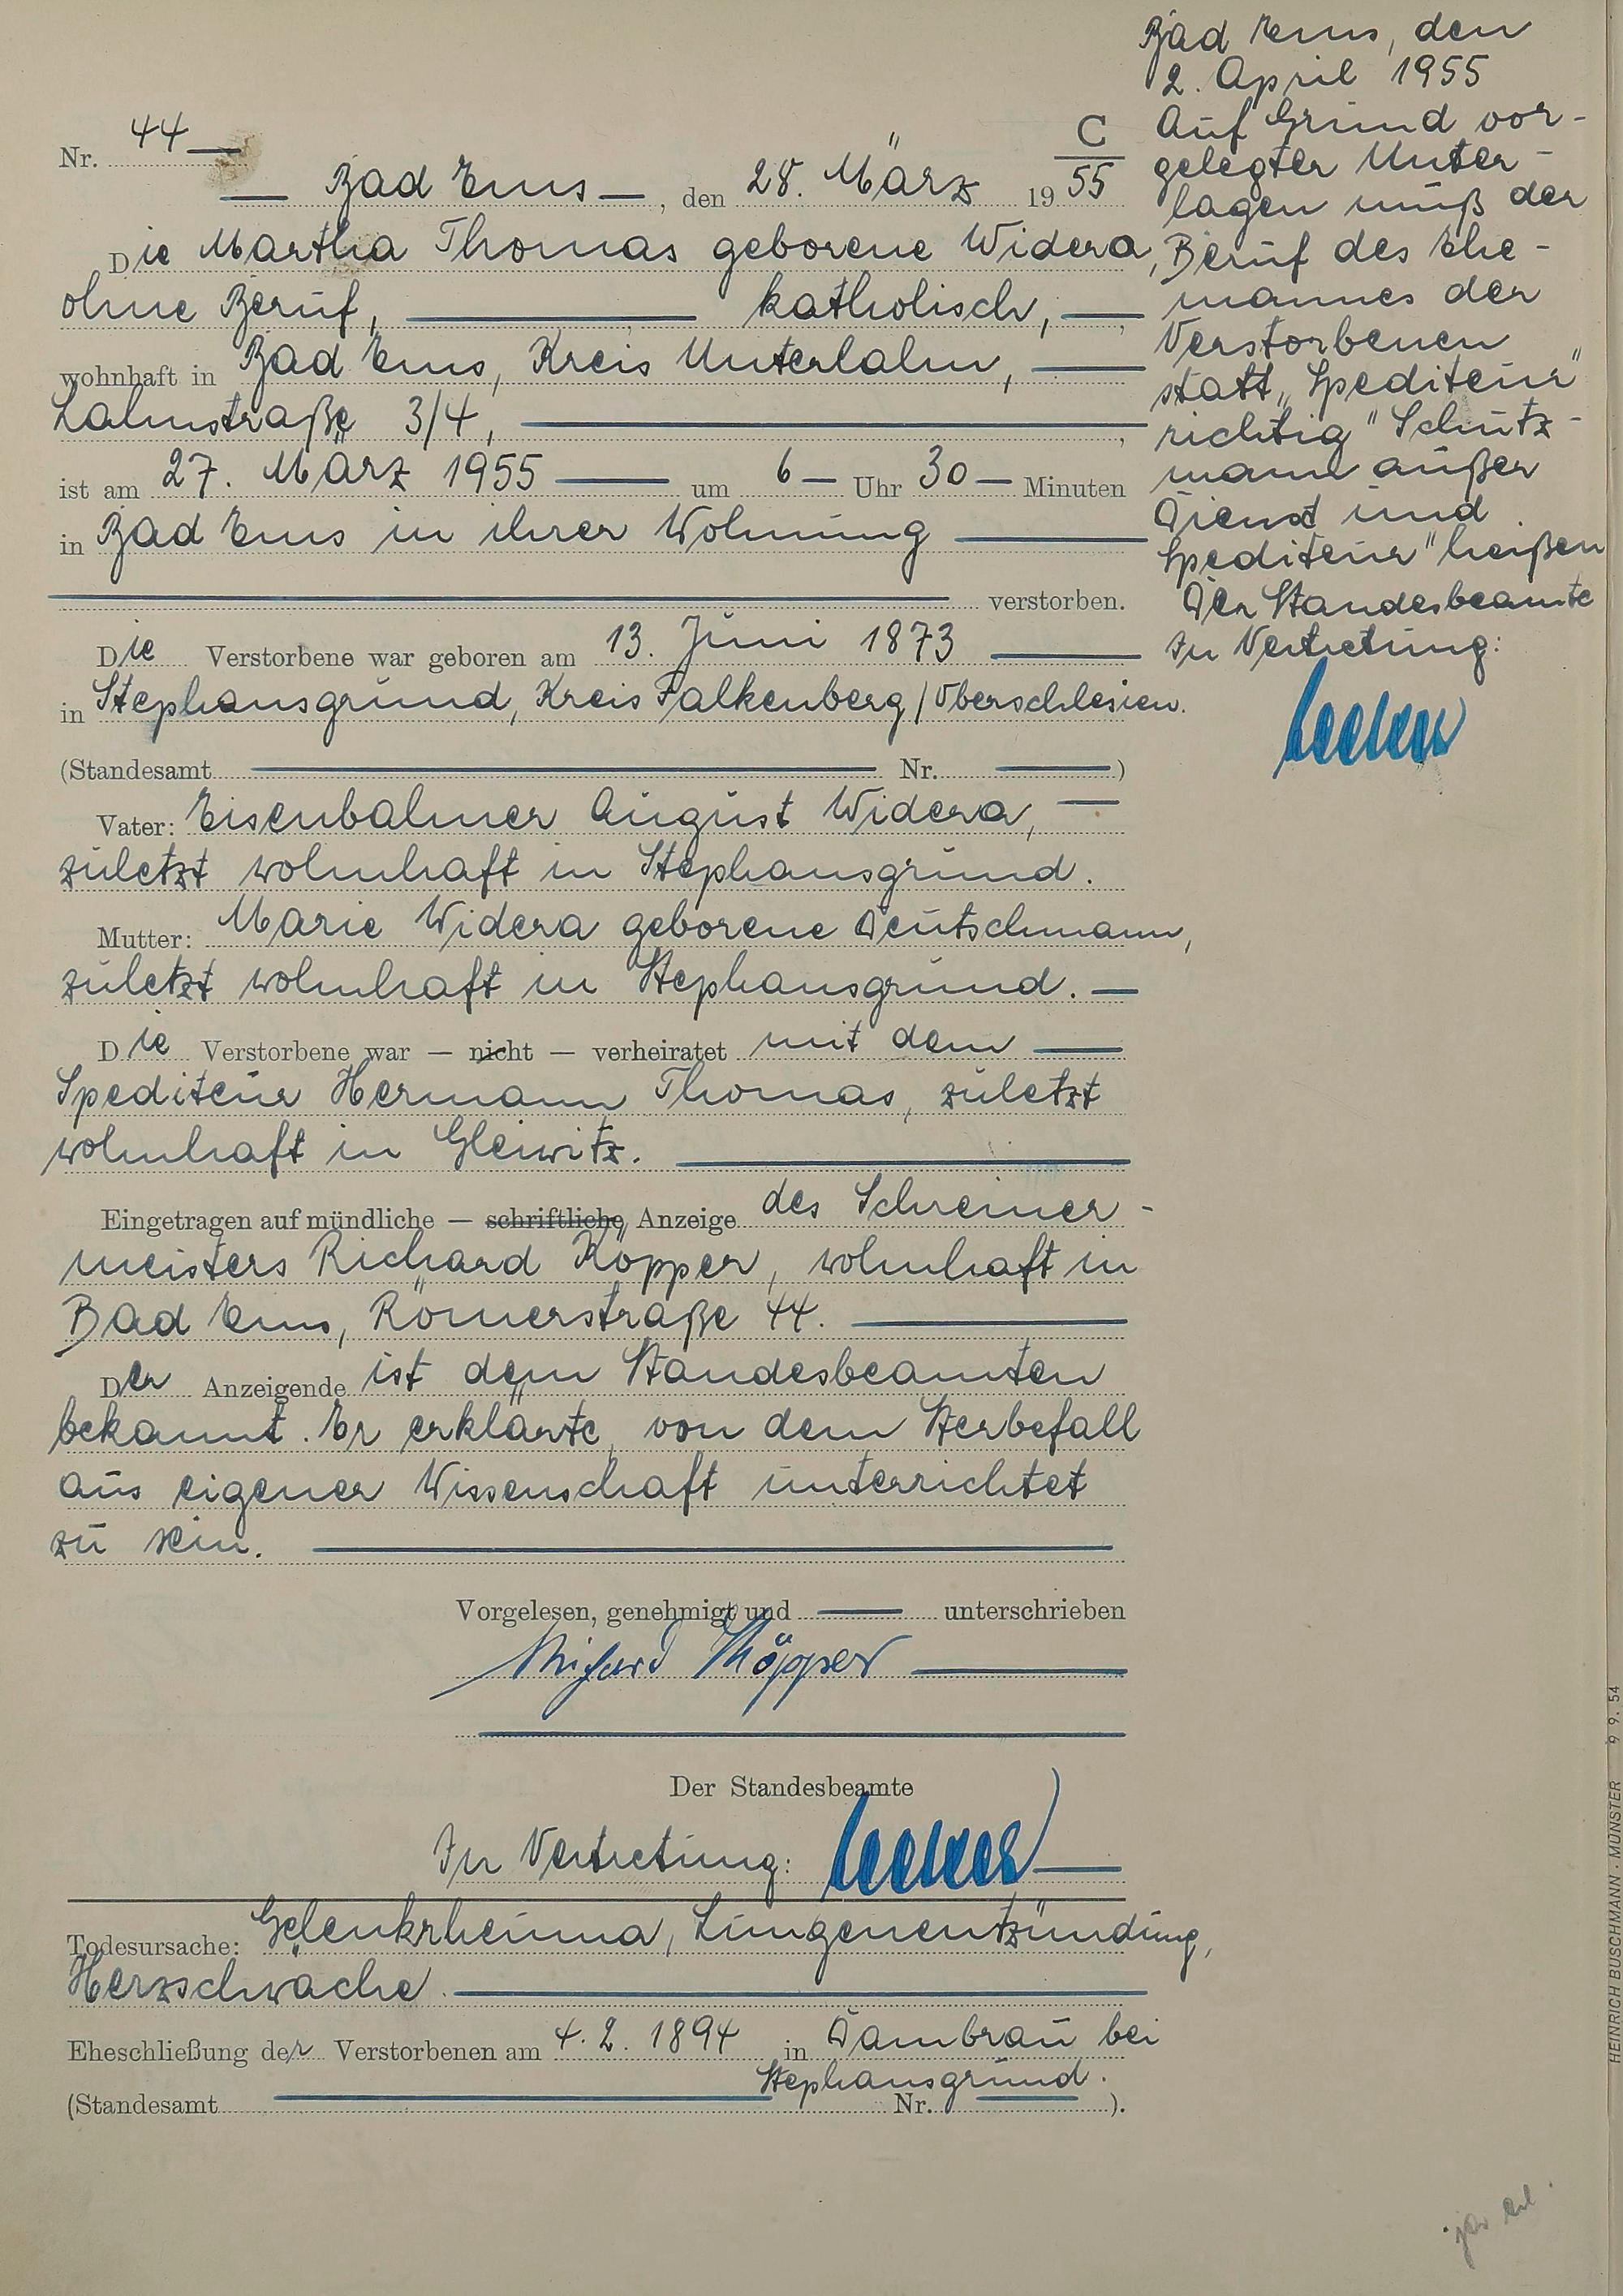 Nr. 44 —
C
— Bad Ems —, den 28. März 1955
Die Martha Thomas geborene Widera,
ohne Beruf, — katholisch, —
wohnhaft in Bad Ems, Kreis Unterlahn, —
Lahnstraße 3/4, —
ist am 27. März 1955 — um 6 — Uhr 30 — Minuten
in Bad Ems in ihrer Wohnung —
— verstorben.
Die Verstorbene war geboren am 13. Juni 1873 —
in Stephansgrund, Kreis Falkenberg/Oberschlesien.
(Standesamt — Nr. —)
Vater: Eisenbahner August Widera, —
zuletzt wohnhaft in Stephansgrund.
Mutter: Marie Widera geborene Deutschmann,
zuletzt wohnhaft in Stephansgrund. —
Die Verstorbene war — nicht — verheiratet mit dem —
Spediteur Hermann Thomas, zuletzt
wohnhaft in Gleiwitz. —
Eingetragen auf mündliche — schriftliche Anzeige des Schreiner-
meisters Richard Köpper, wohnhaft in
Bad Ems, Römerstraße 44. —
Der Anzeigende ist dem Standesbeamten
bekannt. Er erklärte, von dem Sterbefall
aus eigener Wissenschaft unterrichtet
zu sein. —
Vorgelesen, genehmigt und — unterschrieben
Richard Köpper —
Der Standesbeamte
In Vertretung:
Todesursache: Gelenkrheuma, Lungenentzündung,
Herzschwäche. —
Eheschließung der Verstorbenen am 4. 2. 1894 in Dambrau bei
Stephansgrund.
(Standesamt — Nr. —).
Bad Ems, den
2. April 1955
Auf Grund vor-
gelegter Unter-
lagen muß der
Beruf des Ehe-
mannes der
Verstorbenen
statt „Spediteur"
richtig "Schutz-
mann außer
Dienst und
Spediteur" heißen
Der Standesbeamte
In Vertretung:
HEINRICH BUSCHMANN, MÜNSTER 9 9. 54